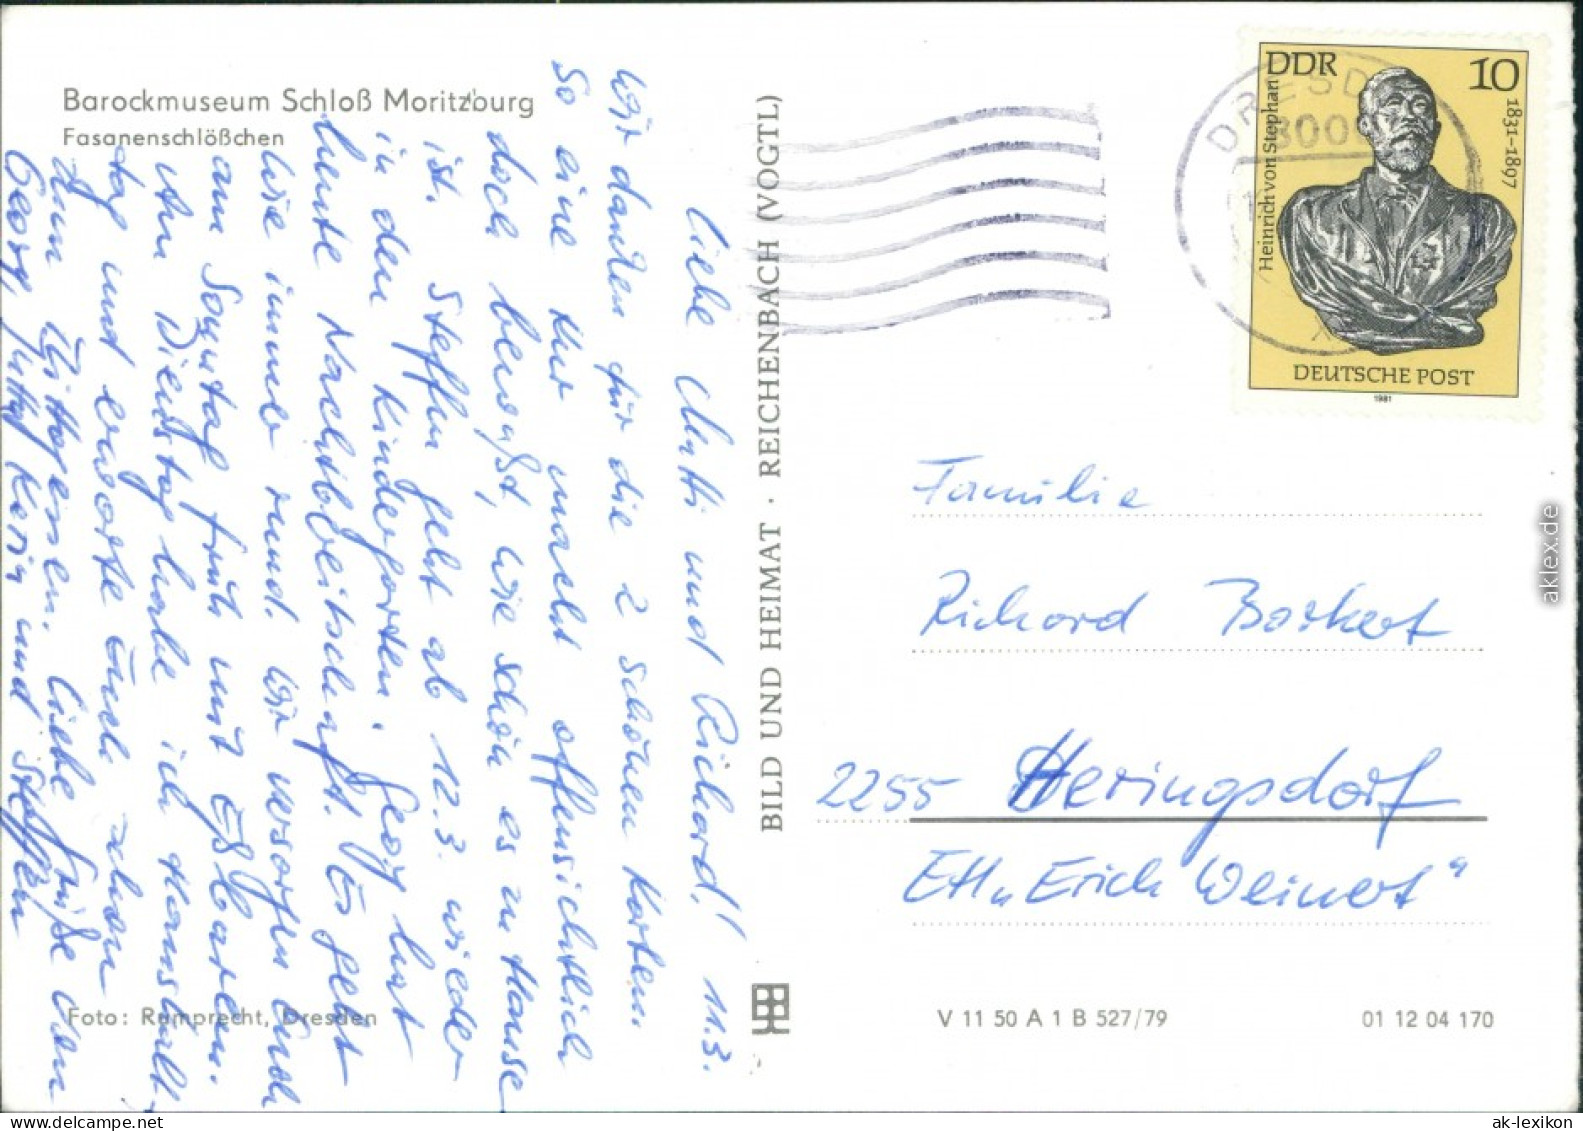 Barockmuseum Schloß Moritzburg
Fasanenschlößchen
Liebe Mutti und Richard! 11.3.
Wir danken für die 2 schönen Karten.
So eine Kur macht offensichtlich
doch bewußt, wie schön es zu Hause
ist. Steffen geht ab 12.3. wieder
in den Kindergarten. Georg hat
heute Nachtbereitschaft. Es geht
wie immer rund. Wir versorgen Euch
am Sonntag früh mit Eßbarem.
Am Dienstag habe ich Haushalt-
tag und erwarte Euch schon
zum Mittagessen. Liebe Grüße von
Georg, Jutta, Kerin und Steffen
Foto: Rumprecht, Dresden
BILD UND HEIMAT · REICHENBACH (VOGTL)
DDR 10
Heinrich von Stephan
1831-1897
DEUTSCHE POST
1981
DRESD
8000
Familie
Richard Borkert
2255 Heringsdorf
EH „Erich Weinert“
V 11 50 A 1 B 527/79
01 12 04 170
aklex.de
ak-lexikon